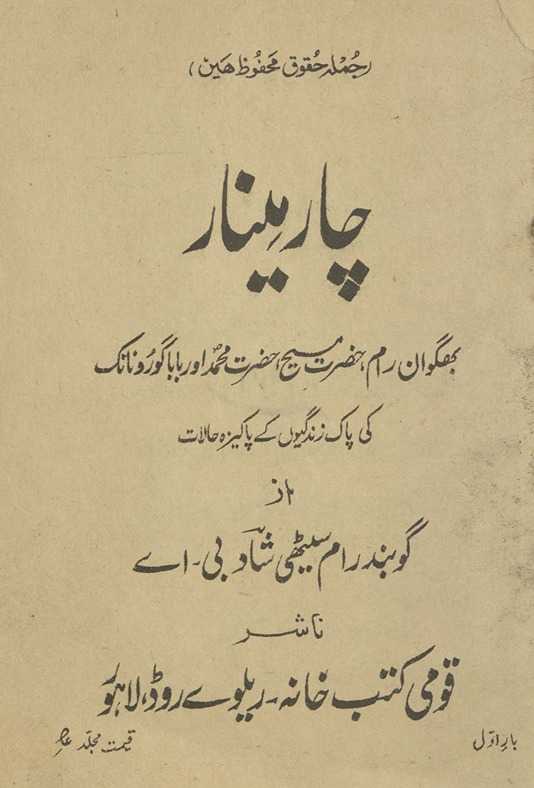 (جُملہ حُقوق مَحفُوظ ھَین)
چار مینار
بھگوان رام، حضرت مسیح، حضرت محمدؐ اور بابا گورو نانک
کی پاک زندگیوں کے پاکیزہ حالات
از
گوبند رام سیٹھی شاد بی۔اے
ناشر
قومی کتب خانہ۔ ریلوے روڈ، لاہور
بار اوّل
قیمت مجلّد